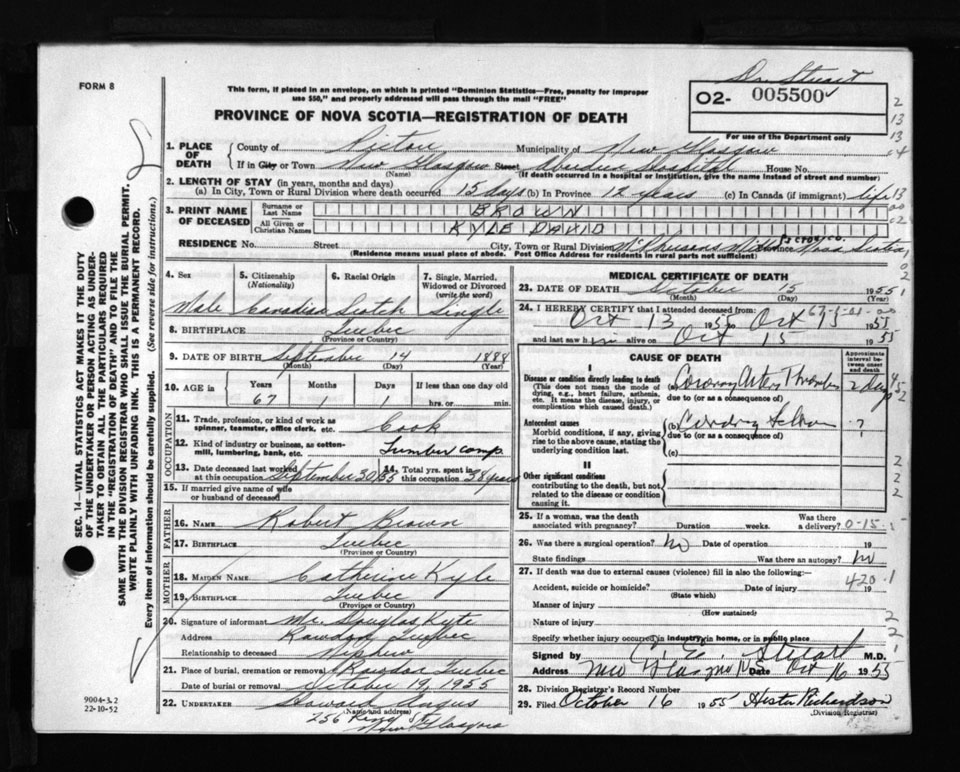 FORM 8
This form, if placed in an envelope, on which is printed "Dominion Statistics—Free, penalty for improper
use $50," and properly addressed will pass through the mail "FREE"
Dr. Stuart
02- 005500
For use of the Department only
PROVINCE OF NOVA SCOTIA—REGISTRATION OF DEATH
1. PLACE OF DEATH
County of Pictou Municipality of New Glasgow
If in City or Town New Glasgow Street Aberdeen Hospital House No.
(Name) (If death occurred in a hospital or institution, give the name instead of street and number)
2. LENGTH OF STAY (in years, months and days)
(a) In City, Town or Rural Division where death occurred 15 days (b) In Province 12 years (c) In Canada (if immigrant) life
3. PRINT NAME OF DECEASED
Surname or Last Name BROWN
All Given or Christian Names KYLE DAVID
RESIDENCE No. Street City, Town or Rural Division Province Nova Scotia
(Residence means usual place of abode. Post Office Address for residents in rural parts not sufficient)
4. Sex
Male
5. Citizenship (Nationality)
Canadian
6. Racial Origin
Scotch
7. Single, Married, Widowed or Divorced (write the word)
Single
8. BIRTHPLACE Quebec
(Province or Country)
9. DATE OF BIRTH September 14 1888
(Month) (Day) (Year)
10. AGE in
Years Months Days If less than one day old
67 1 1 hrs. or min.
OCCUPATION
11. Trade, profession, or kind of work as spinner, teamster, office clerk, etc. Cook
12. Kind of industry or business, as cotton-mill, lumbering, bank, etc. Lumber comp.
13. Date deceased last worked at this occupation September 30/55
14. Total yrs. spent in this occupation 38 years
15. If married give name of wife or husband of deceased
FATHER
16. NAME Robert Brown
17. BIRTHPLACE Quebec
(Province or Country)
MOTHER
18. MAIDEN NAME Catherine Kyle
19. BIRTHPLACE Quebec
(Province or Country)
20. Signature of informant Mr. Douglas Kyte
Address Rawdon Quebec
Relationship to deceased Nephew
21. Place of burial, cremation or removal Rawdon Quebec
Date of burial or removal October 19, 1955
22. UNDERTAKER Howard Angus
(Name and Address)
256 King St
New Glasgow
MEDICAL CERTIFICATE OF DEATH
23. DATE OF DEATH October 15 1955
(Month) (Day) (Year)
24. I HEREBY CERTIFY that I attended deceased from:
Oct 13 1955 to Oct 15 1955
and last saw him alive on Oct 15 1955
CAUSE OF DEATH
Approximate interval between onset and death
I
Disease or condition directly leading to death
(This does not mean the mode of dying, e.g., heart failure, asthenia, etc. It means the disease, injury, or complication which caused death.)
(a) Coronary Artery Thrombosis 2 days
due to (or as a consequence of)
Antecedent causes
Morbid conditions, if any, giving rise to the above cause, stating the underlying condition last.
(b) ?
due to (or as a consequence of)
(c)
II
Other significant conditions
contributing to the death, but not related to the disease or condition causing it.
25. If a woman, was the death associated with pregnancy? Duration weeks. Was there a delivery?
0-15
26. Was there a surgical operation? No Date of operation 19
State findings Was there an autopsy? No
27. If death was due to external causes (violence) fill in also the following:—
Accident, suicide or homicide? Date of injury 19
420.1
(State which)
Manner of injury
(How sustained)
Nature of injury
Specify whether injury occurred in industry, in home, or in public place
Signed by C. E. Stuart M.D.
Address New Glasgow N.S. Oct 16 1955
28. Division Registrar's Record Number
29. Filed October 16 1955 Hester Richardson
(Division Registrar)
SEC. 14—VITAL STATISTICS ACT MAKES IT THE DUTY
OF THE UNDERTAKER OR PERSON ACTING AS UNDER-
TAKER TO OBTAIN ALL THE PARTICULARS REQUIRED
IN THE "REGISTRATION OF DEATH" AND TO FILE THE
SAME WITH THE DIVISION REGISTRAR WHO SHALL ISSUE THE BURIAL PERMIT.
WRITE PLAINLY WITH UNFADING INK. THIS IS A PERMANENT RECORD.
Every item of information should be carefully supplied. (See reverse side for instructions.)
9004-3.2
22-10-52